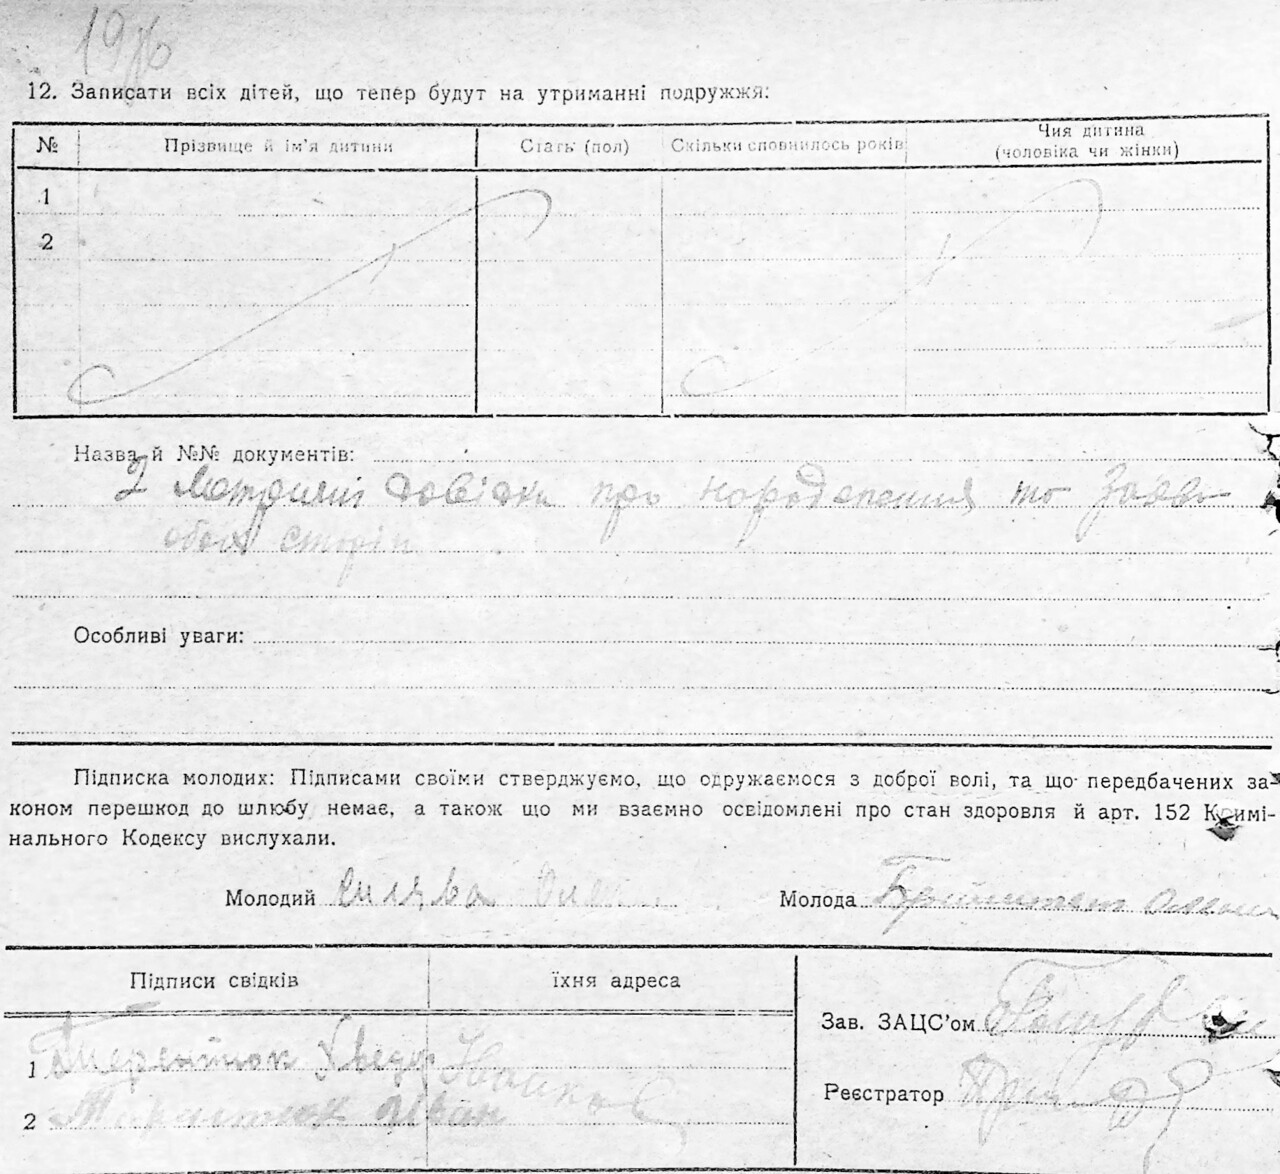 12. Записати всіх дітей, що тепер будут на утриманні подружжя:
№ Прізвище й ім'я дитини Стать (пол) Скільки сповнилось років Чия дитина
(чоловіка чи жінки)
1
2
Назва й №№ документів:
2 Метричні довідки про народження та заяви
обох сторін
Особливі уваги:
Підписка молодих: Підписами своїми стверджуємо, що одружаємося з доброї волі, та що передбачених за-
коном перешкод до шлюбу немає, а також що ми взаємно освідомлені про стан здоровля й арт. 152 Кримі-
нального Кодексу вислухали.
Молодий Молода
Підписи свідків їхня адреса
Зав. ЗАЦС'ом
1
Реєстратор
2